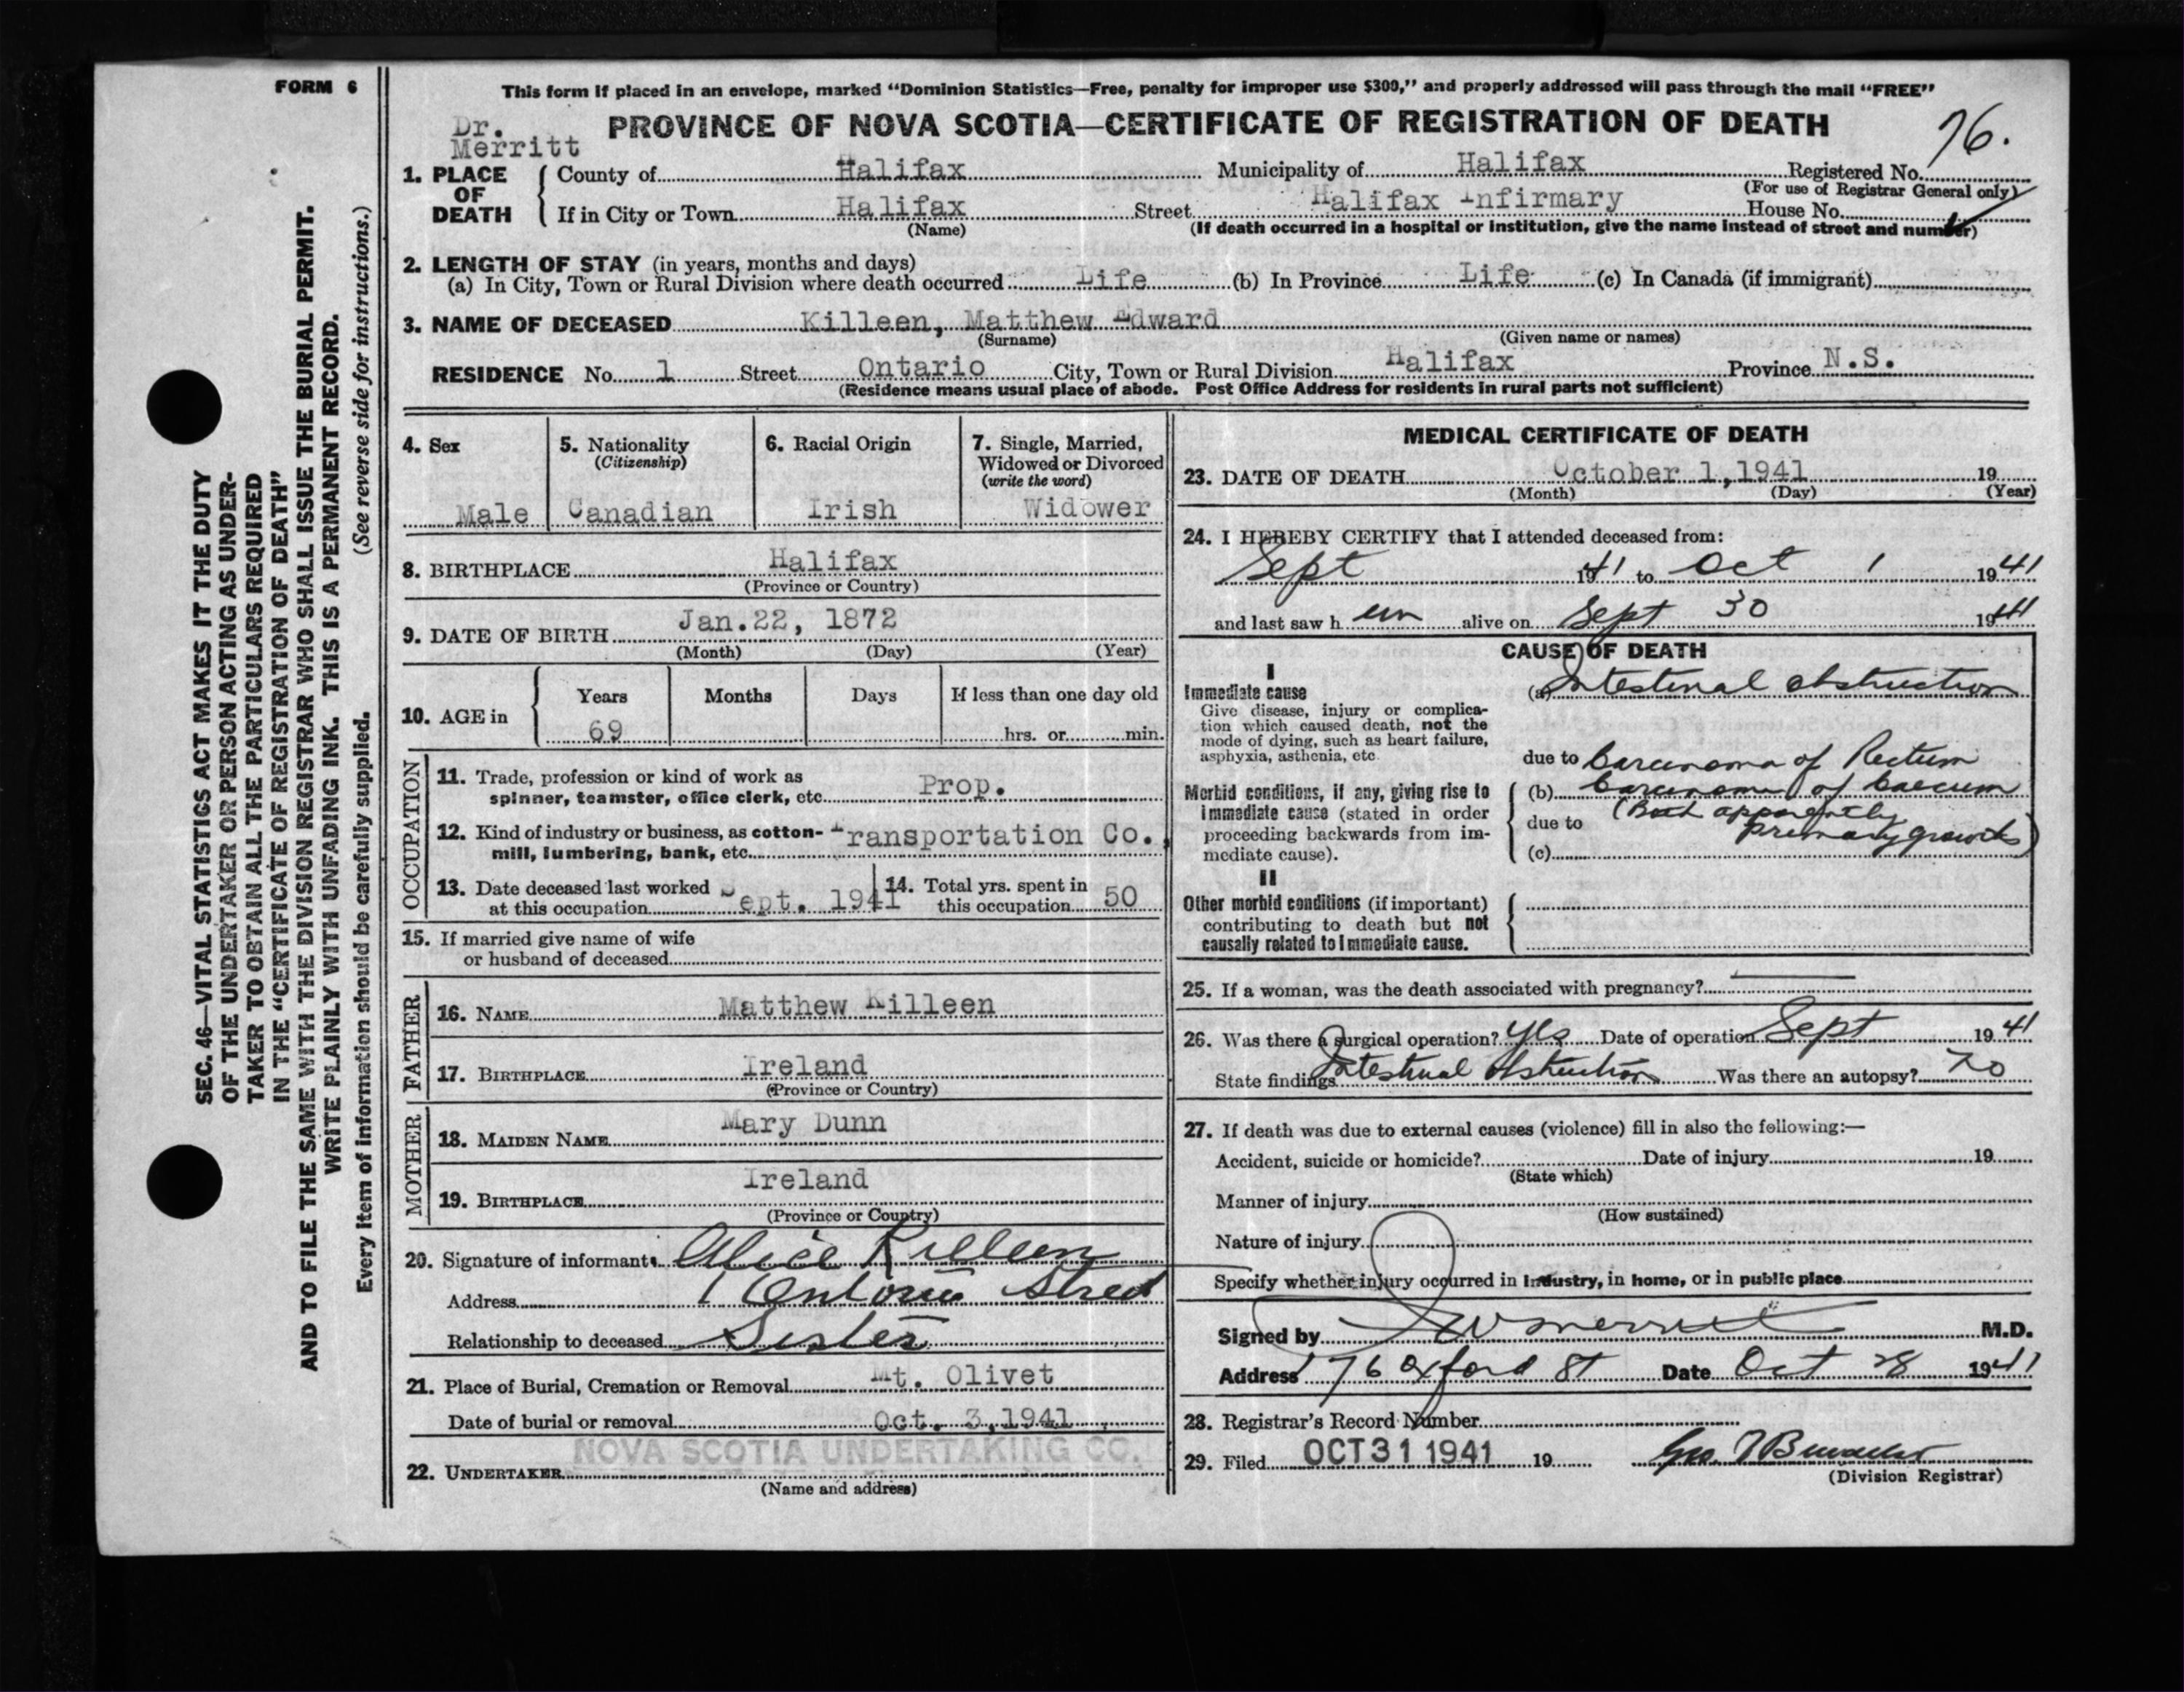 FORM 6
This form if placed in an envelope, marked "Dominion Statistics—Free, penalty for improper use $300," and properly addressed will pass through the mail "FREE"
Dr. Merritt
PROVINCE OF NOVA SCOTIA—CERTIFICATE OF REGISTRATION OF DEATH
76.
1. PLACE OF DEATH
County of Halifax Municipality of Halifax Registered No.
(For use of Registrar General only)
If in City or Town Halifax Street Halifax Infirmary House No.
(Name) (If death occurred in a hospital or institution, give the name instead of street and number)
2. LENGTH OF STAY (in years, months and days)
(a) In City, Town or Rural Division where death occurred Life (b) In Province Life (c) In Canada (if immigrant)
3. NAME OF DECEASED Killeen, Matthew Edward
(Surname) (Given name or names)
RESIDENCE No. 1 Street Ontario City, Town or Rural Division Halifax Province N.S.
(Residence means usual place of abode. Post Office Address for residents in rural parts not sufficient)
4. Sex
Male
5. Nationality
(Citizenship)
Canadian
6. Racial Origin
Irish
7. Single, Married,
Widowed or Divorced
(write the word)
Widower
8. BIRTHPLACE Halifax
(Province or Country)
9. DATE OF BIRTH Jan.22, 1872
(Month) (Day) (Year)
10. AGE in
Years Months Days If less than one day old
69 hrs. or min.
OCCUPATION
11. Trade, profession or kind of work as
spinner, teamster, office clerk, etc. Prop.
12. Kind of industry or business, as cotton-
mill, lumbering, bank, etc. Transportation Co.,
13. Date deceased last worked
at this occupation Sept. 1941
14. Total yrs. spent in
this occupation 50
15. If married give name of wife
or husband of deceased
FATHER
16. NAME Matthew Killeen
17. BIRTHPLACE Ireland
(Province or Country)
MOTHER
18. MAIDEN NAME Mary Dunn
19. BIRTHPLACE Ireland
(Province or Country)
20. Signature of informant Alice Killeen
Address 1 Ontario Street
Relationship to deceased Sister
21. Place of Burial, Cremation or Removal Mt. Olivet
Date of burial or removal Oct. 3,1941
NOVA SCOTIA UNDERTAKING CO.
22. UNDERTAKER
(Name and address)
MEDICAL CERTIFICATE OF DEATH
23. DATE OF DEATH October 1,1941 19
(Month) (Day) (Year)
24. I HEREBY CERTIFY that I attended deceased from:
Sept 1941 to Oct 1 1941
and last saw h im alive on Sept 30 1941
CAUSE OF DEATH
I
Immediate cause
Give disease, injury or complica-
tion which caused death, not the
mode of dying, such as heart failure,
asphyxia, asthenia, etc
(a) Intestinal obstruction
due to Carcinoma of Rectum
Morbid conditions, if any, giving rise to
immediate cause (stated in order
proceeding backwards from im-
mediate cause).
(b) Carcinoma of Caecum
due to (Both apparently
primary growths)
(c)
II
Other morbid conditions (if important)
contributing to death but not
causally related to immediate cause.
25. If a woman, was the death associated with pregnancy?
26. Was there a surgical operation? Yes Date of operation Sept 1941
State findings Intestinal Obstruction Was there an autopsy? No
27. If death was due to external causes (violence) fill in also the following:—
Accident, suicide or homicide? Date of injury 19
(State which)
Manner of injury
(How sustained)
Nature of injury
Specify whether injury occurred in industry, in home, or in public place
Signed by Merritt M.D.
Address 176 Oxford St Date Oct 28 1941
28. Registrar's Record Number
29. Filed OCT 31 1941 19
(Division Registrar)
SEC. 46—VITAL STATISTICS ACT MAKES IT THE DUTY
OF THE UNDERTAKER OR PERSON ACTING AS UNDER-
TAKER TO OBTAIN ALL THE PARTICULARS REQUIRED
IN THE "CERTIFICATE OF REGISTRATION OF DEATH"
AND TO FILE THE SAME WITH THE DIVISION REGISTRAR WHO SHALL ISSUE THE BURIAL PERMIT.
WRITE PLAINLY WITH UNFADING INK. THIS IS A PERMANENT RECORD.
Every item of information should be carefully supplied. (See reverse side for instructions.)